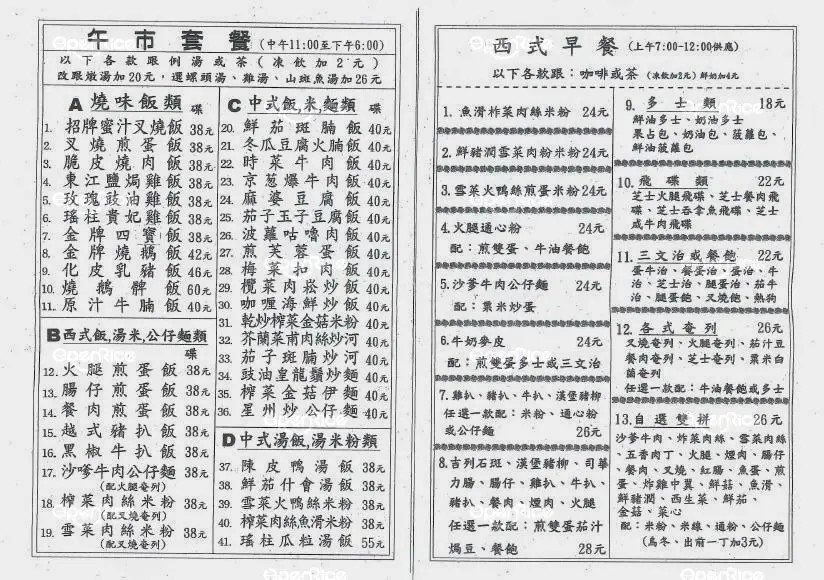 午市套餐(中午11:00至下午6:00)
以下各款跟例湯或茶(凍飲加2元)
改跟燉湯加20元，選螺頭湯、雞湯、山斑魚湯加26元
A燒味飯類 碟
1. 招牌蜜汁叉燒飯 38元
2. 叉燒煎蛋飯 38元
3. 脆皮燒肉飯 38元
4. 東江鹽焗雞飯 38元
5. 玫瑰豉油雞飯 38元
6. 瑤柱貴妃雞飯 38元
7. 金牌四寶飯 38元
8. 金牌燒鵝飯 42元
9. 化皮乳豬飯 46元
10. 燒鵝髀飯 60元
11. 原汁牛腩飯 40元
B西式飯,湯米,公仔麵類
碟
12. 火腿煎蛋飯 38元
13. 腸仔煎蛋飯 38元
14. 餐肉煎蛋飯 38元
15. 越式豬扒飯 38元
16. 黑椒牛扒飯 38元
17. 沙嗲牛肉公仔麵 38元
(配火腿奄列)
18. 榨菜肉絲米粉 38元
(配叉燒奄列)
19. 雪菜肉絲米粉 38元
(配叉燒奄列)
C中式飯,米,麵類 碟
20. 鮮茄斑腩飯 40元
21. 冬瓜豆腐火腩飯 40元
22. 時菜牛肉飯 40元
23. 京葱爆牛肉飯 40元
24. 麻婆豆腐飯 40元
25. 茄子玉子豆腐飯 40元
26. 波蘿咕嚕肉飯 40元
27. 煎芙蓉蛋飯 40元
28. 梅菜扣肉飯 40元
29. 欖菜肉崧炒飯 40元
30. 咖喱海鮮炒飯 40元
31. 乾炒榨菜金菇米粉 40元
32. 芥蘭菜甫肉絲炒河 40元
33. 茄子斑腩炒河 40元
34. 豉油皇龍鬚炒麵 40元
35. 榨菜金菇伊麵 40元
36. 星州炒公仔麵 40元
D中式湯飯,湯米粉類
37. 陳皮鴨湯飯 38元
38. 鮮茄什會湯飯 38元
39. 雪菜火鴨絲米粉 38元
40. 榨菜肉絲魚滑米粉 38元
41. 瑤柱瓜粒湯飯 55元
西式早餐(上午7:00-12:00供應)
以下各款跟：咖啡或茶(凍飲加2元)鮮奶加4元
1. 魚滑柞菜肉絲米粉 24元
2. 鮮豬潤雪菜肉粉米粉24元
3. 雪菜火鴨絲煎蛋米粉24元
4. 火腿通心粉 24元
配：煎雙蛋、牛油餐飽
5. 沙爹牛肉公仔麵 24元
配：粟米炒蛋
6. 牛奶麥皮 24元
配：煎雙蛋多士或三文治
7. 雞扒、豬扒、牛扒、漢堡豬柳
任選一款配：米粉、通心粉
或公仔麵 26元
8. 吉列石斑、漢堡豬柳、司華
力腸、腸仔、雞扒、牛扒、
豬扒、餐肉、煙肉、火腿
任選一款配：煎雙蛋茄汁
焗豆、餐飽 28元
9. 多士類 18元
鮮油多士、奶油多士
果占包、奶油包、菠蘿包、
鮮油菠蘿包
10. 飛碟類 22元
芝士火腿飛碟、芝士餐肉飛
碟、芝士吞拿魚飛碟、芝士
咸牛肉飛碟
11. 三文治或餐飽 22元
蛋牛治、餐蛋治、蛋治、牛
治、芝士治、腿蛋治、茄牛
治、腿蛋飽、叉燒飽、熱狗
12. 各式奄列 26元
叉燒奄列、火腿奄列、茄汁豆
餐肉奄列、芝士奄列、粟米白
菌奄列
任選一款配：牛油餐飽或多士
13. 自選雙拼 26元
沙爹牛肉、炸菜肉絲、雪菜肉絲
、五香肉丁、火腿、煙肉、腸仔
、餐肉、叉燒、紅腸、魚蛋、煎
蛋、炸雞中翼、鮮菇、魚滑、
鮮豬潤、西生菜、鮮茄、
金菇、菜心
配：米粉、米線、通粉、公仔麵
(烏冬、出前一丁加3元)